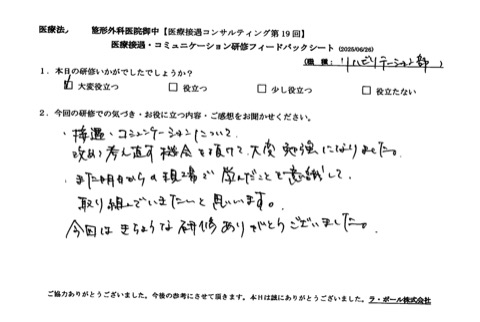 医療法人 整形外科医院御中【医療接遇コンサルティング第19回】
医療接遇・コミュニケーション研修フィードバックシート (2025/06/26)
(職種: リハビリテーション部 )
1.本日の研修いかがでしたでしょうか?
☑ 大変役立つ □ 役立つ □ 少し役立つ □ 役立たない
2.今回の研修での気づき・お役に立つ内容・ご感想をお聞かせください。
・接遇・コミュニケーションについて、
改めて考え直す機会を頂けて、大変勉強になりました。
・また明日からの現場で学んだことを意識して、
取り組んでいきたいと思います。
今回はきちょうな研修ありがとうございました。
ご協力ありがとうございました。今後の参考にさせて頂きます。本日は誠にありがとうございました。ラ・ポール株式会社